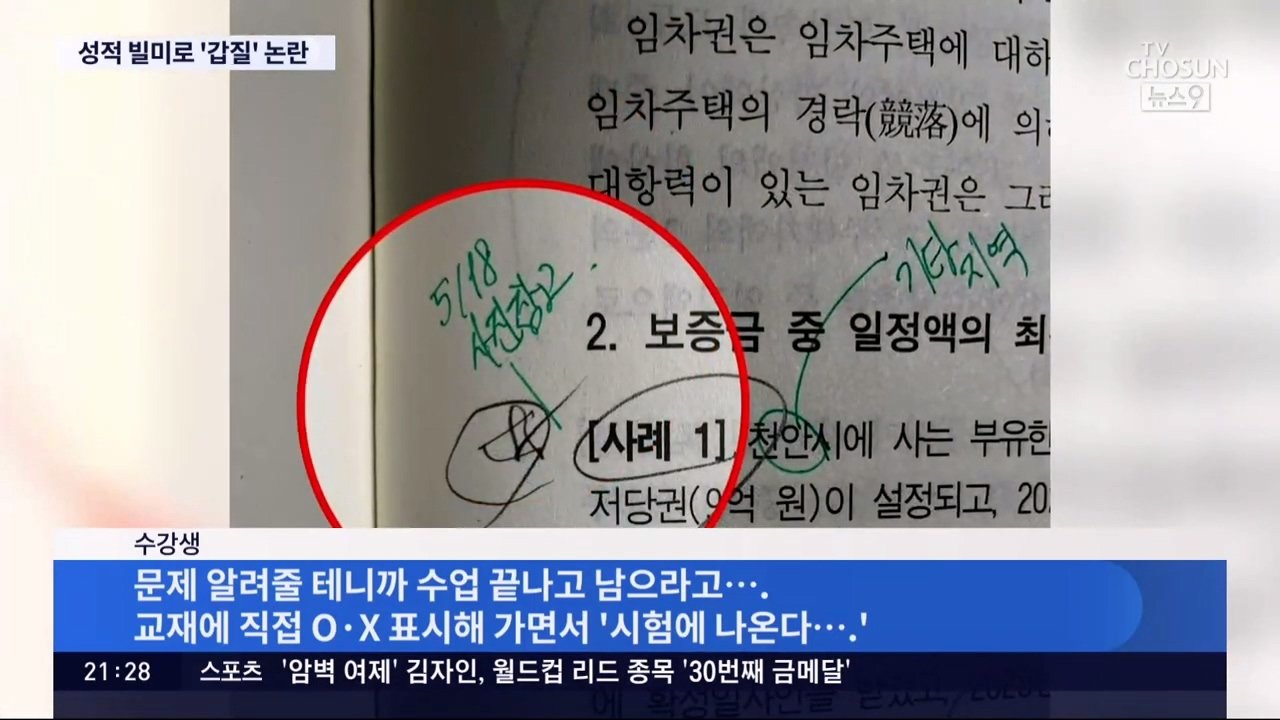 성적 빌미로 '갑질' 논란
TV
CHOSUN
뉴스9
임차권은 임차주택에 대하
임차주택의 경락(競落)에 의하
대항력이 있는 임차권은 그러
5/18
사진창고
기타지역
2. 보증금 중 일정액의 최
[사례 1] 천안시에 사는 부유한
저당권(9억 원)이 설정되고, 20
수강생
문제 알려줄 테니까 수업 끝나고 남으라고….
교재에 직접 O·X 표시해 가면서 '시험에 나온다….'
21:28 스포츠 '암벽 여제' 김자인, 월드컵 리드 종목 '30번째 금메달'
에 확정일자인을 받았고,